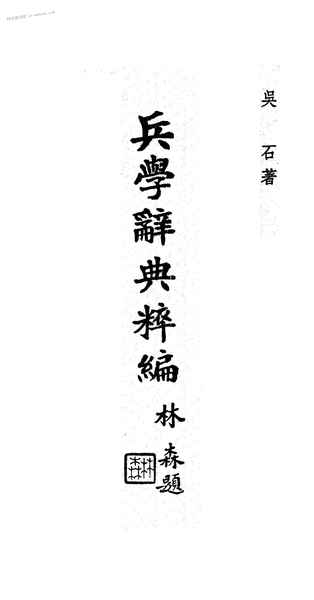 吳石著
兵學辭典粹編
林森題
林森